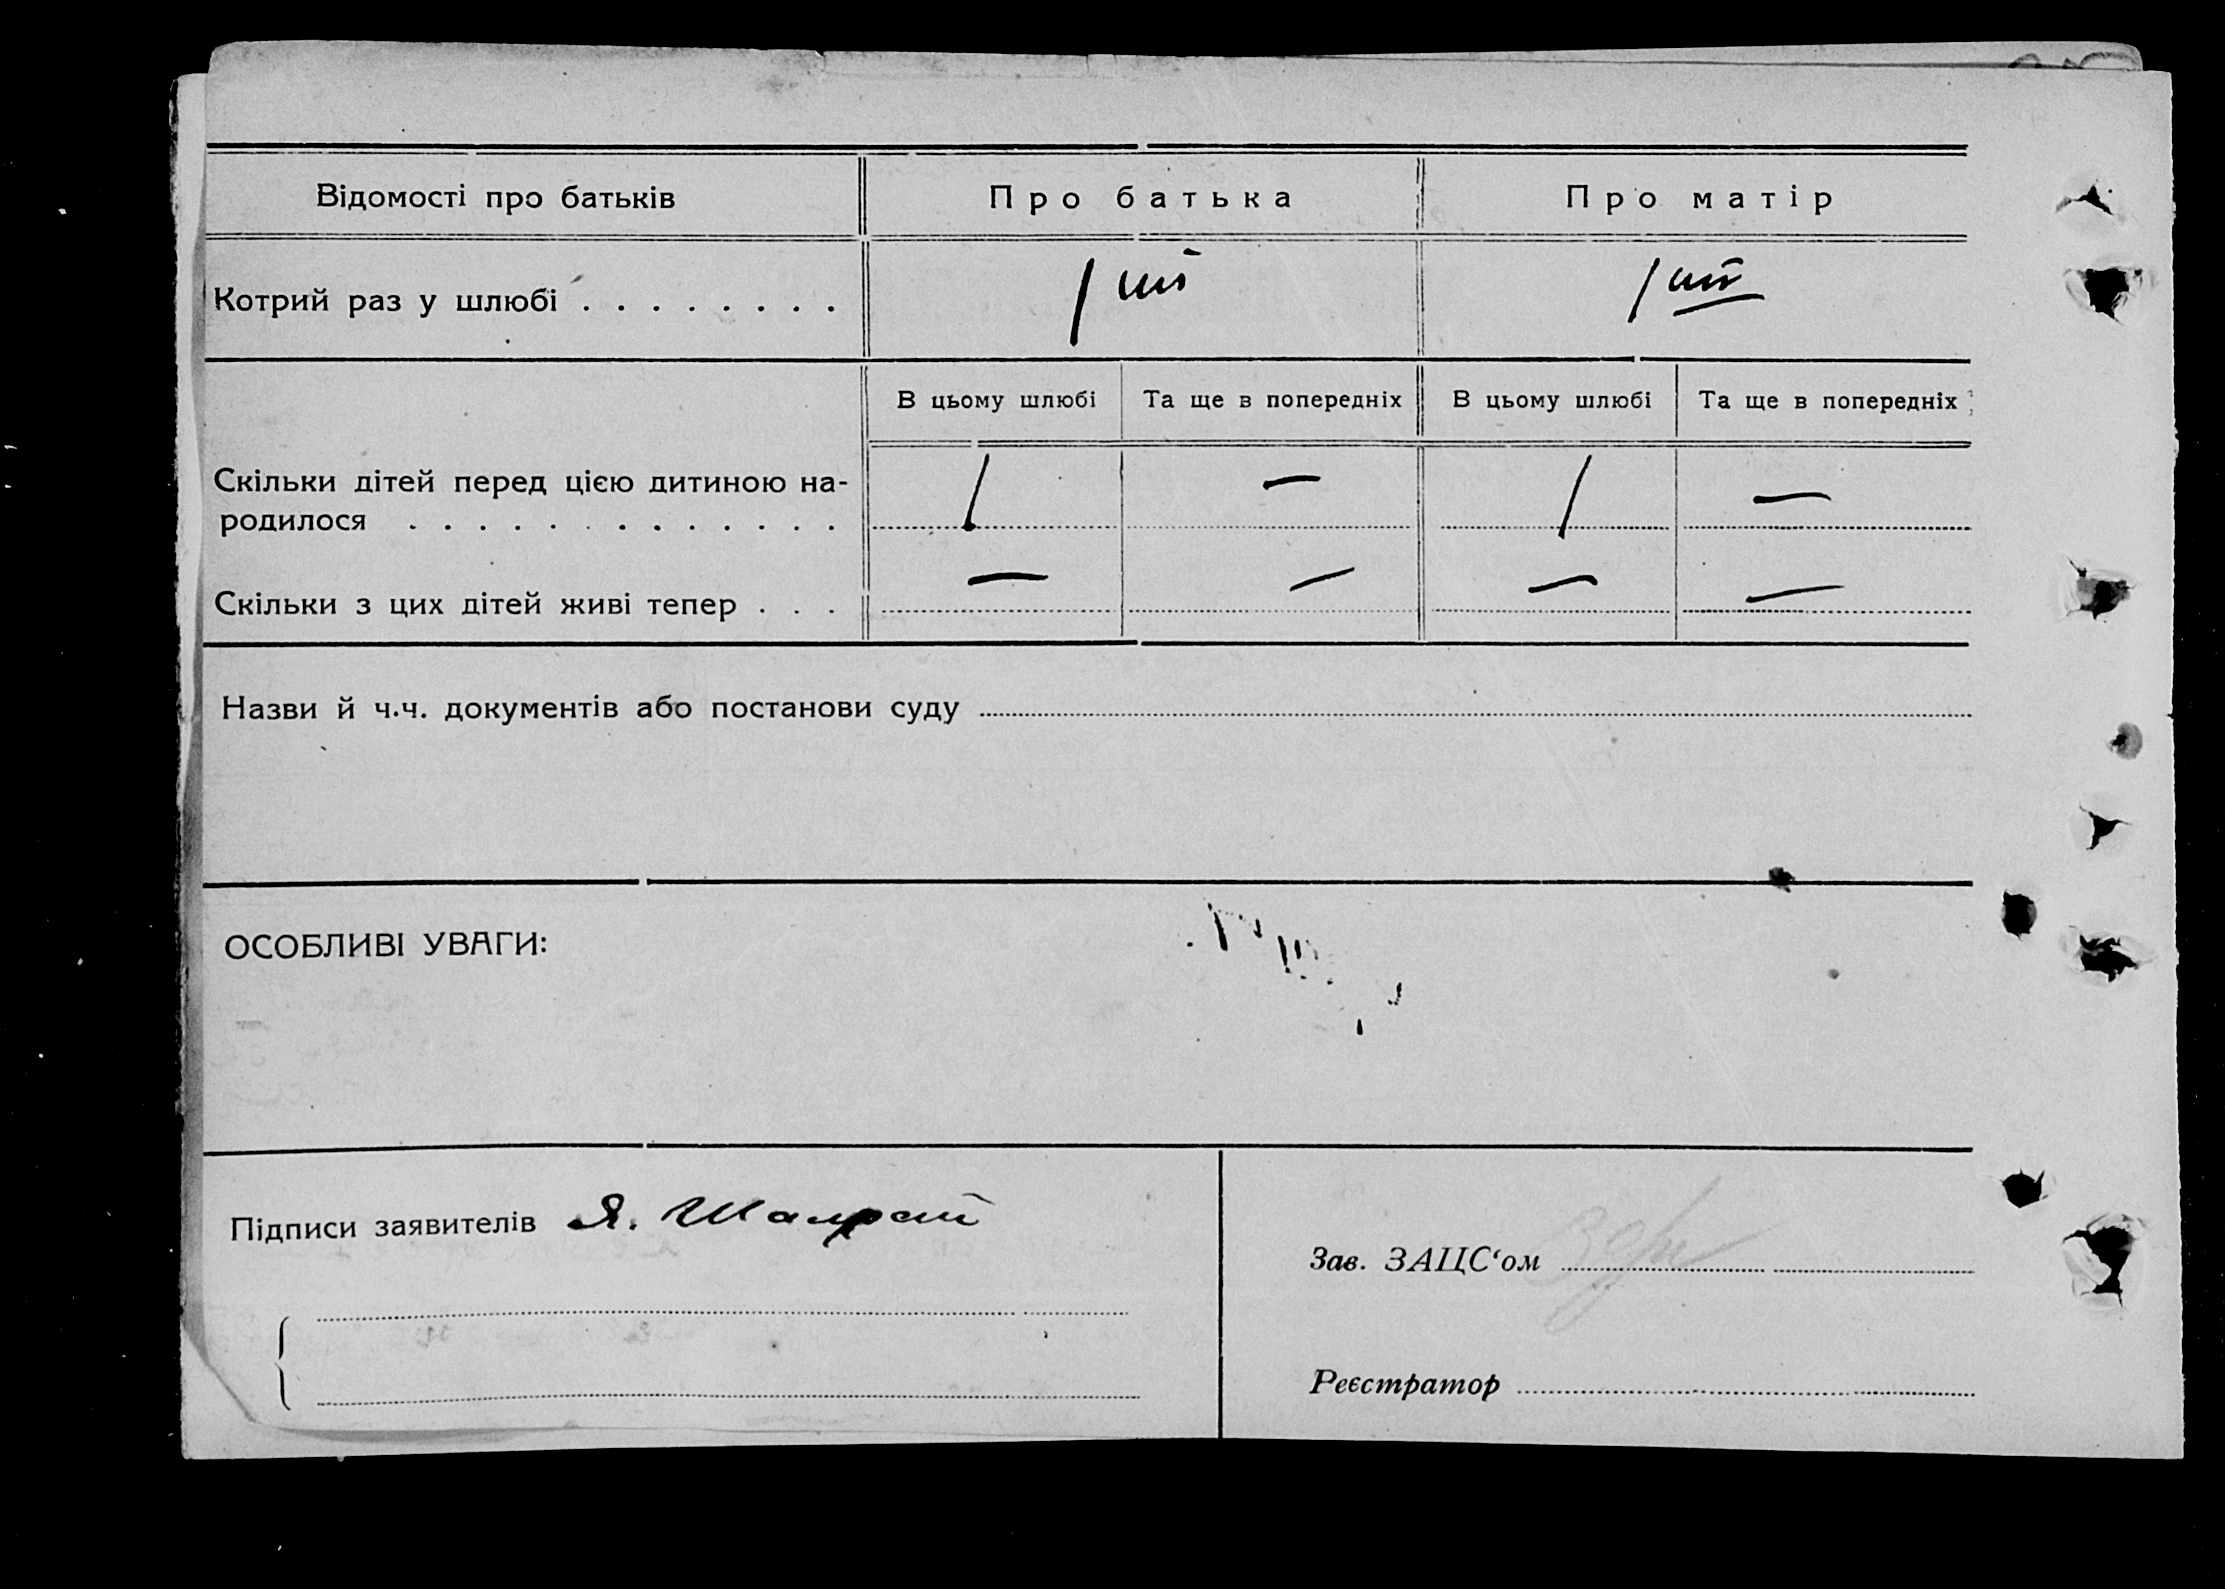 Відомості про батьків Про батька Про матір
Котрий раз у шлюбі . . . . . . . . 1ий 1ий
В цьому шлюбі Та ще в попередніх В цьому шлюбі Та ще в попередніх
Скільки дітей перед цією дитиною на-
родилося . . . . . . . . . . . . . 1 — 1 —
Скільки з цих дітей живі тепер . . . — — — —
Назви й ч.ч. документів або постанови суду
ОСОБЛИВІ УВАГИ:
Підписи заявителів Я.
Зав. ЗАЦС‘ом
Реєстратор